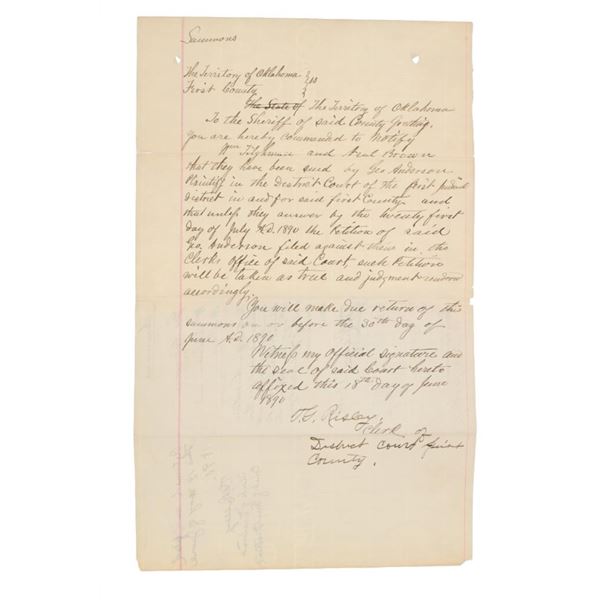 Summons
The Territory of Oklahoma } ss
First County }
~~The State of~~ The Territory of Oklahoma
To the Sheriff of said County Greeting,
You are hereby commanded to Notify
Wm Tilghman and Neal Brown
that they have been sued by Geo Anderson
Plaintiff in the District Court of the first judicial
district in and for said first County and
that unless they answer by the twenty first
day of July A.D. 1890 the Petition of said
Geo. Anderson filed against them in the
Clerks office of said Court such Petition
will be taken as true and judgment rendered
accordingly,
You will make due return of this
summons on or before the 30th day of
June A.D. 1890
Witness my Official signature and
the seal of said Court hereto
affixed this 18th day of June
1890
T. G. Risley,
Clerk of
District Court First
County.